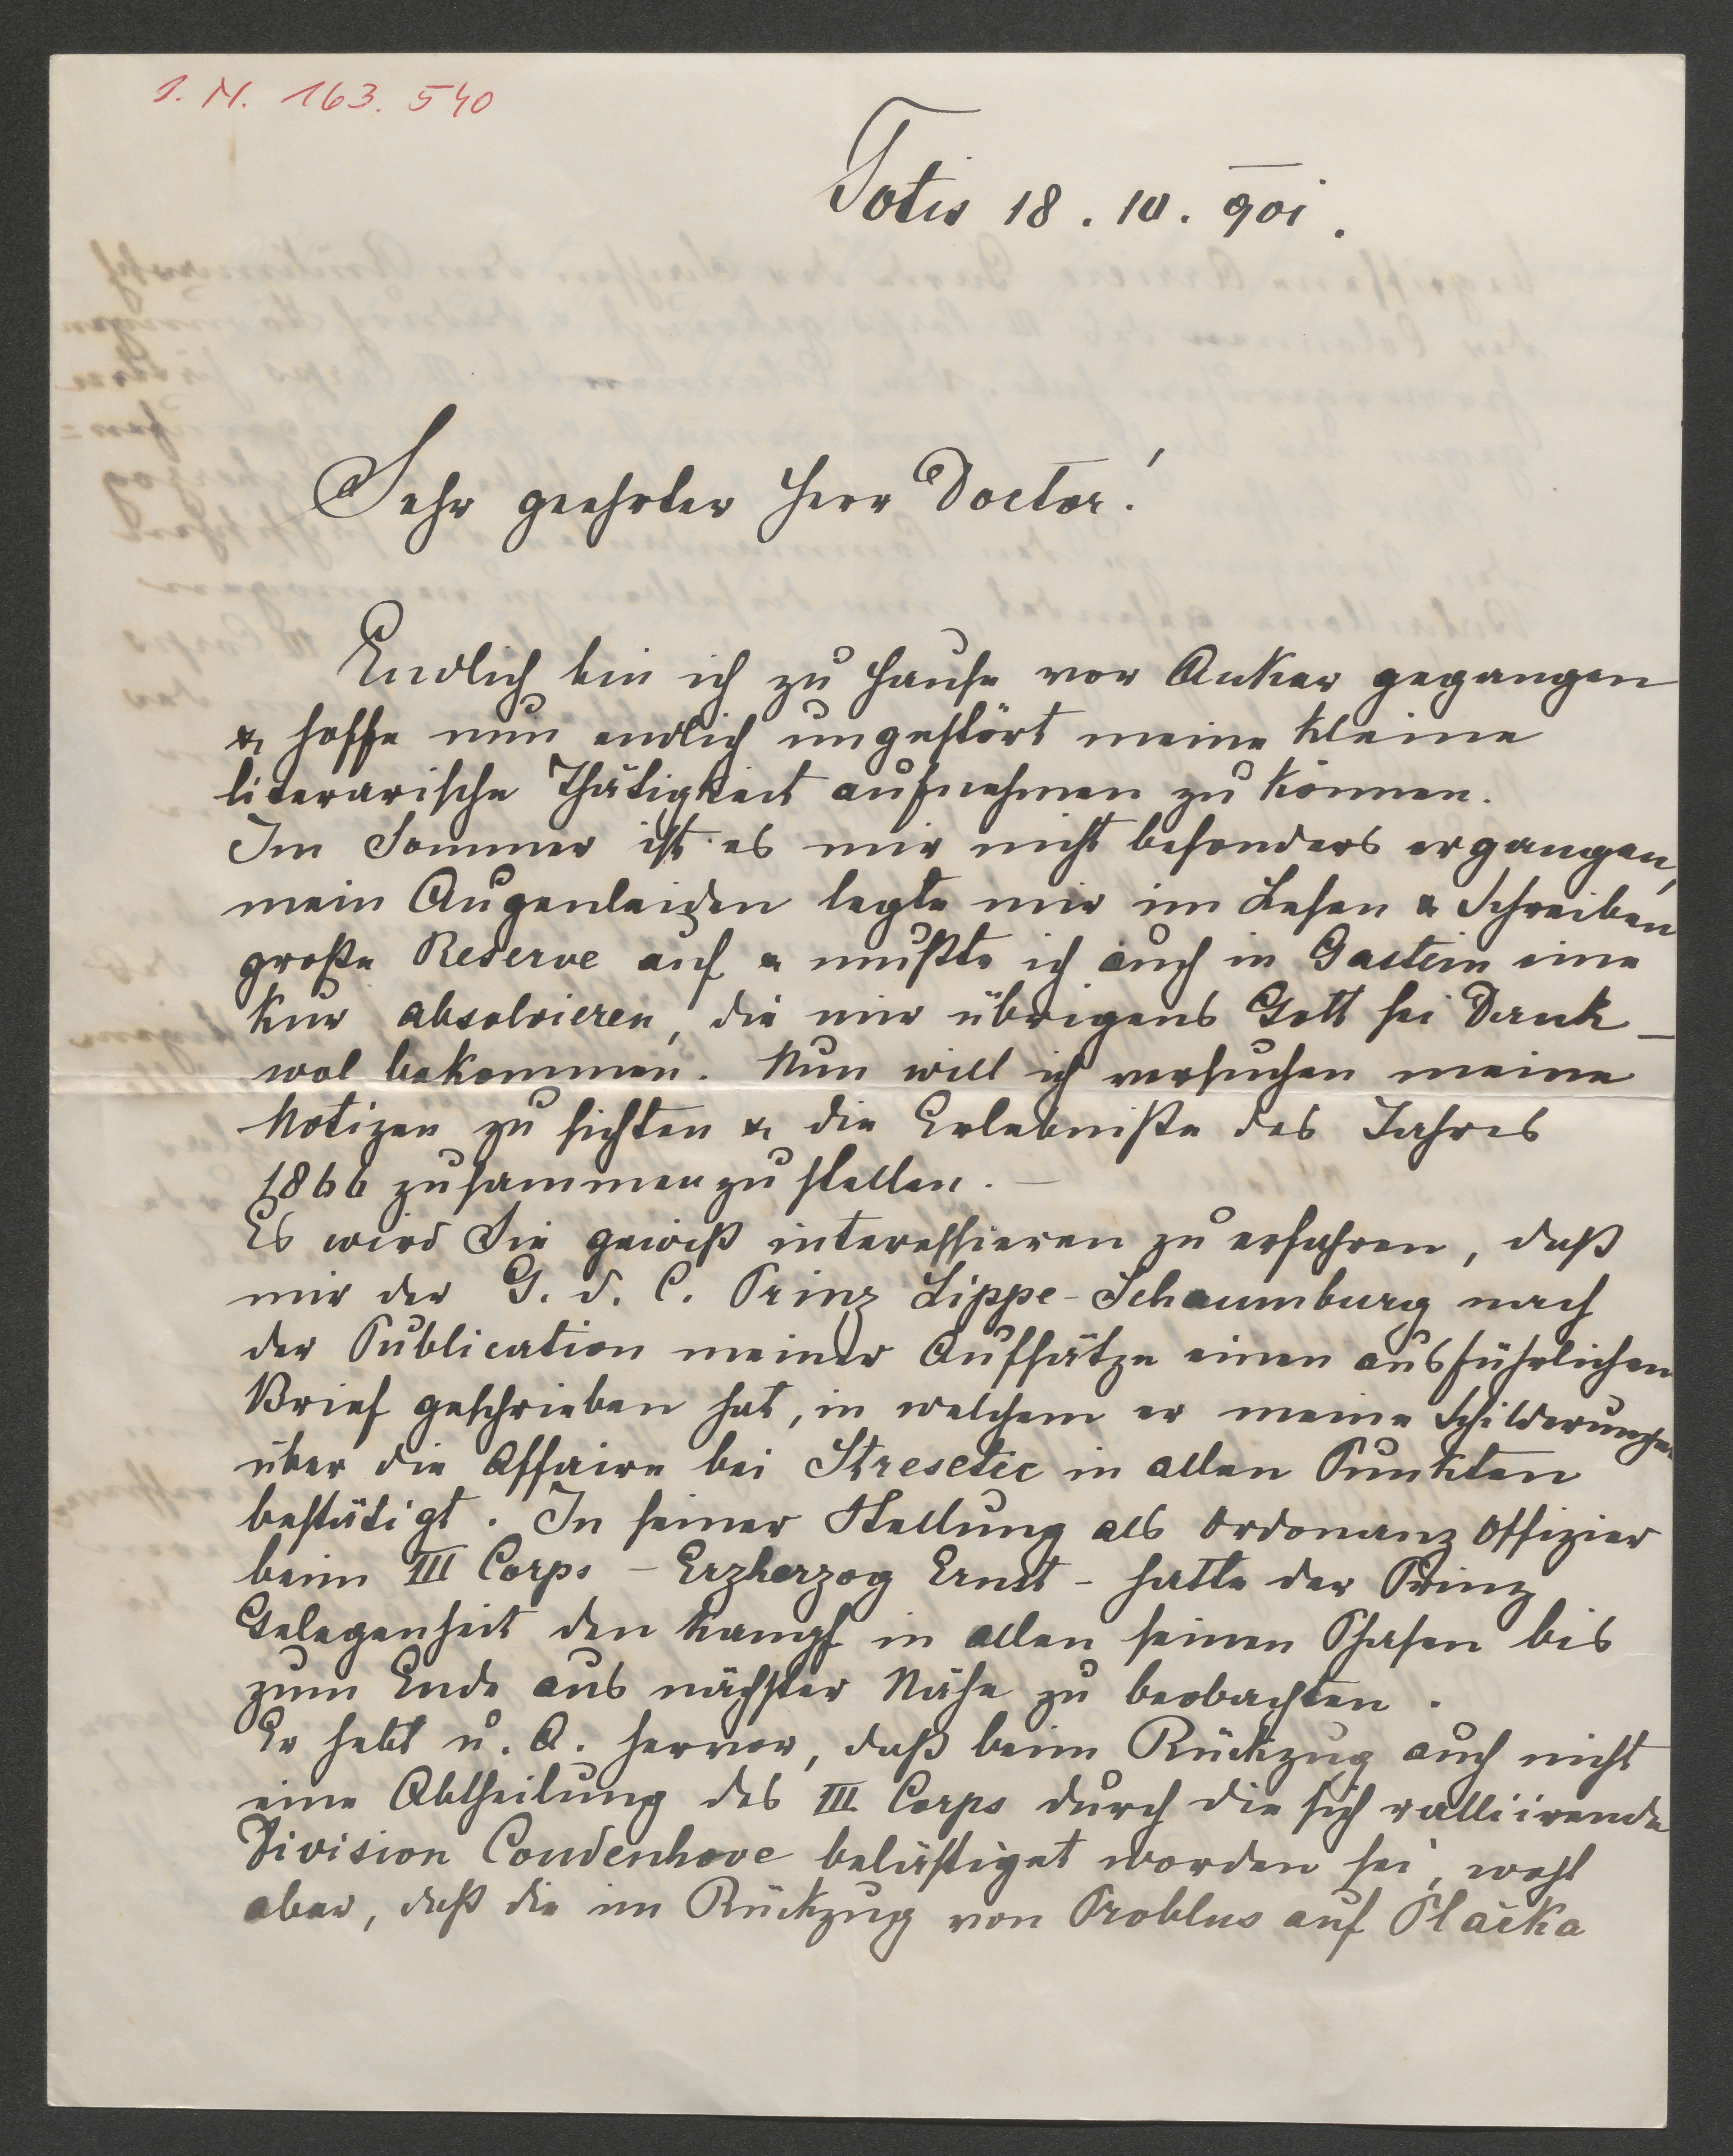 I. N. 163.540
Totis 18. 10. 901.
Sehr geehrter Herr Doctor!
Endlich bin ich zu Hause vor Anker gegangen
& hoffe nun endlich ungestört meine kleine
literarische Thätigkeit aufnehmen zu können.
Im Sommer ist es mir nicht besonders ergangen,
mein Augenleiden legte mir im Lesen & Schreiben
große Reserve auf & mußte ich auch in Gastein eine
Kur absolvieren, die mir übrigens Gott sei Dank –
wol bekommen. Nun will ich versuchen meine
Notizen zu sichten & die Erlebniße des Jahres
1866 zusammenzustellen. –
Es wird Sie gewiß interessieren zu erfahren, daß
mir der G. d. C. Prinz Lippe-Schaumburg nach
der Publication meiner Aufsätze einen ausführlichen
Brief geschrieben hat, in welchem er meine Schilderungen
über die Affaire bei Stresetic in allen Punkten
bestätigt. In seiner Stellung als Ordonanz Offizier
beim III Corps – Erzherzog Ernst – hatte der Prinz
Gelegenheit den Kampf in allen seinen Phasen bis
zum Ende aus nächster Nähe zu beobachten.
Er hebt u. A. hervor, daß beim Rückzug auch nicht
eine Abtheilung des III. Corps durch die sich ralliirende
Division Coudenhove belästiget worden sei, wohl
aber, daß die im Rückzug von Problus auf Plačka